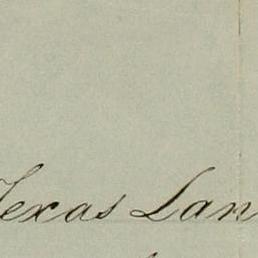 Texas Lan